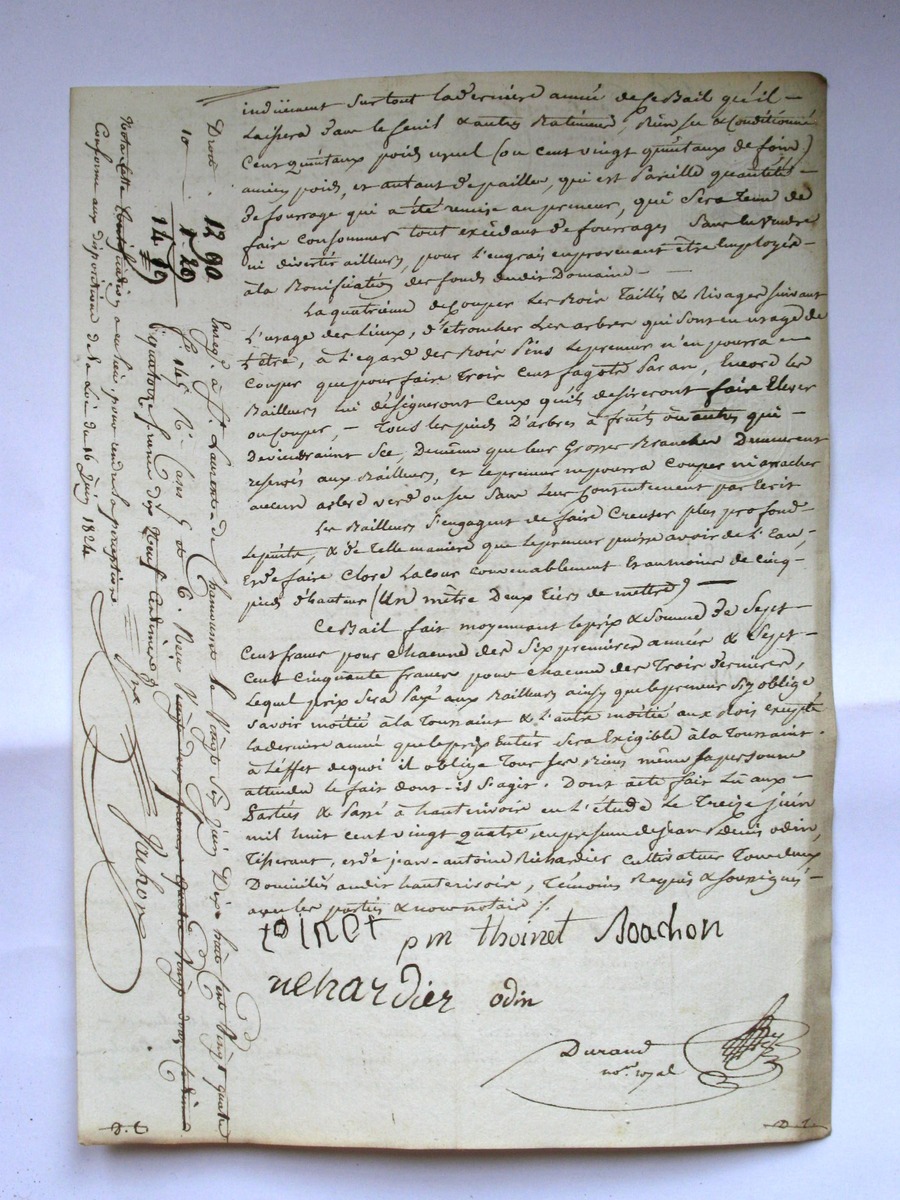 surtout la dernière année de ce Bail qu'il –
Laissera dans le fenil & autres Batimens, Bien sec & Conditionné
Cent quintaux poids usuel (ou cent vingt quintaux de foin)
ancien poids, et autant de paille, qui est Pareille quantité –
de fourrage qui a été remise au preneur, qui Sera tenu de
faire Consommer tout excédant de fourrages Sans les vendre
ni divertir ailleurs, pour l'engrais en provenant être Employé –
à la Bonification des fonds dudit Domaine –
La quatrième de Couper Les Bois Taillis & Rivages suivant
L'usage des Lieux, d'étroncher Les arbres qui Sont en usage de
L'être, à L'égard des Bois Pins Le preneur n'en pourra –
Couper que pour faire Trois Cent fagots Par an, Encore les
Bailleurs lui désigneront Ceux qu'ils désireront faire Elever
ou Couper, – Tous les pieds d'arbres à fruits ou autres qui –
Deviendraint Sec, De même que leur Grosses Branches Demeurent
reservés aux Bailleurs, et le preneur ne pourra Couper ni arracher
aucun arbre verd ou sec Sans Leur Consentement par Ecrit
Les Bailleurs S'engagent de faire Creuser plus profond –
le puits, & de Telle manière que le preneur puisse avoir de L'Eau,
Et de faire Clore La Cour convenablement Et au moins de cinq –
pieds d'hauteur (Un mètre Deux Tiers de mettre) —
Ce Bail fait moyennant le prix & Somme de Sept –
Cent francs pour chacune des Six premières années & Sept –
Cent Cinquante francs pour chacune des Trois dernières,
Lequel prix Sera Payé aux Bailleurs ainsy que le preneur S'y oblige
Savoir moitié à la Toussaint & L'autre moitié aux Rois excepté
la dernière année que le prix Entier Sera Exigible à la Toussaint.
à L'effet de quoi il oblige Tous Ses Biens même Sa personne
attendu le fait dont il S'agit. Dont acte fait Lu aux –
Parties & Passé à hauterivoire en L'étude Le Treize juin
mil huit cent vingt quatre, en présence de jean Denis odin,
Tisserant, et de jean-antoine Richardier Cultivateur Tous deux
Domiciliés audit hauterivoire, Témoins Requis & soussignés –
avec les parties & nous notaire /.
toinet pm thoinet Boachon
richardier odin
Durand
nore royal
D. L.
Droit. 12 90
10 1 29
14 19
Enregé à St Laurent de Chamousset le Vingt Six juin Dix huit Cent Vingt quatre
fo 145 Ro Cases 5 et 6. Reçu Vingt
quatorze francs dix Neuf Centimes
Jachon
Nota Cette
a eu lieu pour rendre la perception
Conforme aux dispositions de La Loi du 16 juin 1824